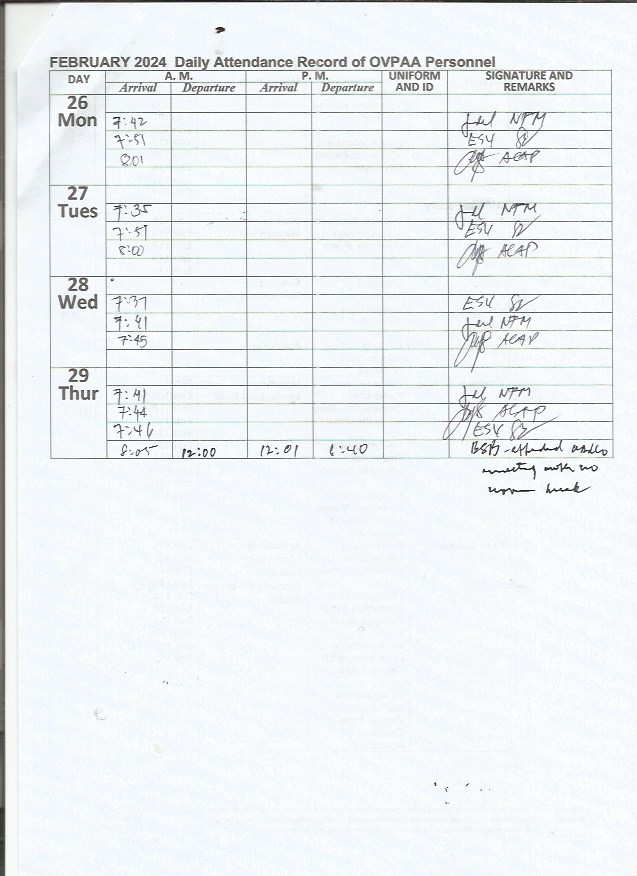 FEBRUARY 2024 Daily Attendance Record of OVPAA Personnel
DAY A. M. P. M. UNIFORM AND ID SIGNATURE AND REMARKS
Arrival Departure Arrival Departure
26
Mon 7:42 NFM
7:51 ESV
8:01 ACAP
27
Tues 7:35 NFM
7:57 ESV
8:00 ACAP
28
Wed 7:37 ESV
7:41 NFM
7:45 ACAP
29
Thur 7:41 NFM
7:44 ACAP
7:46 ESV
8:05 12:00 12:01 BSB - attended
meeting with no
noon break